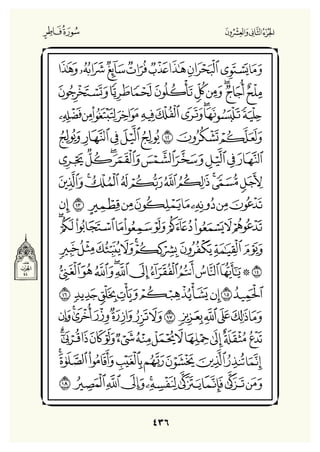 الجُزْءُ الثَّانِي وَالعِشْرُونَ
سُورَةُ فَاطِرٍ
وَمَا يَسْتَوِى ٱلْبَحْرَانِ هَٰذَا عَذْبٌ فُرَاتٌ سَآئِغٌ شَرَابُهُۥ وَهَٰذَا
مِلْحٌ أُجَاجٌ ۖ وَمِن كُلٍّ تَأْكُلُونَ لَحْمًا طَرِيًّا وَتَسْتَخْرِجُونَ
حِلْيَةً تَلْبَسُونَهَا ۖ وَتَرَى ٱلْفُلْكَ فِيهِ مَوَاخِرَ لِتَبْتَغُوا۟ مِن فَضْلِهِۦ
وَلَعَلَّكُمْ تَشْكُرُونَ ١٢ يُولِجُ ٱلَّيْلَ فِى ٱلنَّهَارِ وَيُولِجُ
ٱلنَّهَارَ فِى ٱلَّيْلِ وَسَخَّرَ ٱلشَّمْسَ وَٱلْقَمَرَ ۖ كُلٌّ يَجْرِى
لِأَجَلٍ مُّسَمًّى ۚ ذَٰلِكُمُ ٱللَّهُ رَبُّكُمْ لَهُ ٱلْمُلْكُ ۚ وَٱلَّذِينَ
تَدْعُونَ مِن دُونِهِۦ مَا يَمْلِكُونَ مِن قِطْمِيرٍ ١٣ إِن
تَدْعُوهُمْ لَا يَسْمَعُوا۟ دُعَآءَكُمْ وَلَوْ سَمِعُوا۟ مَا ٱسْتَجَابُوا۟ لَكُمْ ۖ
وَيَوْمَ ٱلْقِيَٰمَةِ يَكْفُرُونَ بِشِرْكِكُمْ ۚ وَلَا يُنَبِّئُكَ مِثْلُ خَبِيرٍ
١٤ ۞ يَٰٓأَيُّهَا ٱلنَّاسُ أَنتُمُ ٱلْفُقَرَآءُ إِلَى ٱللَّهِ ۖ وَٱللَّهُ هُوَ ٱلْغَنِىُّ
ٱلْحَمِيدُ ١٥ إِن يَشَأْ يُذْهِبْكُمْ وَيَأْتِ بِخَلْقٍ جَدِيدٍ ١٦
وَمَا ذَٰلِكَ عَلَى ٱللَّهِ بِعَزِيزٍ ١٧ وَلَا تَزِرُ وَازِرَةٌ وِزْرَ أُخْرَىٰ ۚ وَإِن
تَدْعُ مُثْقَلَةٌ إِلَىٰ حِمْلِهَا لَا يُحْمَلْ مِنْهُ شَىْءٌ وَلَوْ كَانَ ذَا قُرْبَىٰٓ ۗ
إِنَّمَا تُنذِرُ ٱلَّذِينَ يَخْشَوْنَ رَبَّهُم بِٱلْغَيْبِ وَأَقَامُوا۟ ٱلصَّلَوٰةَ ۚ
وَمَن تَزَكَّىٰ فَإِنَّمَا يَتَزَكَّىٰ لِنَفْسِهِۦ ۚ وَإِلَى ٱللَّهِ ٱلْمَصِيرُ ١٨
٤٣٦